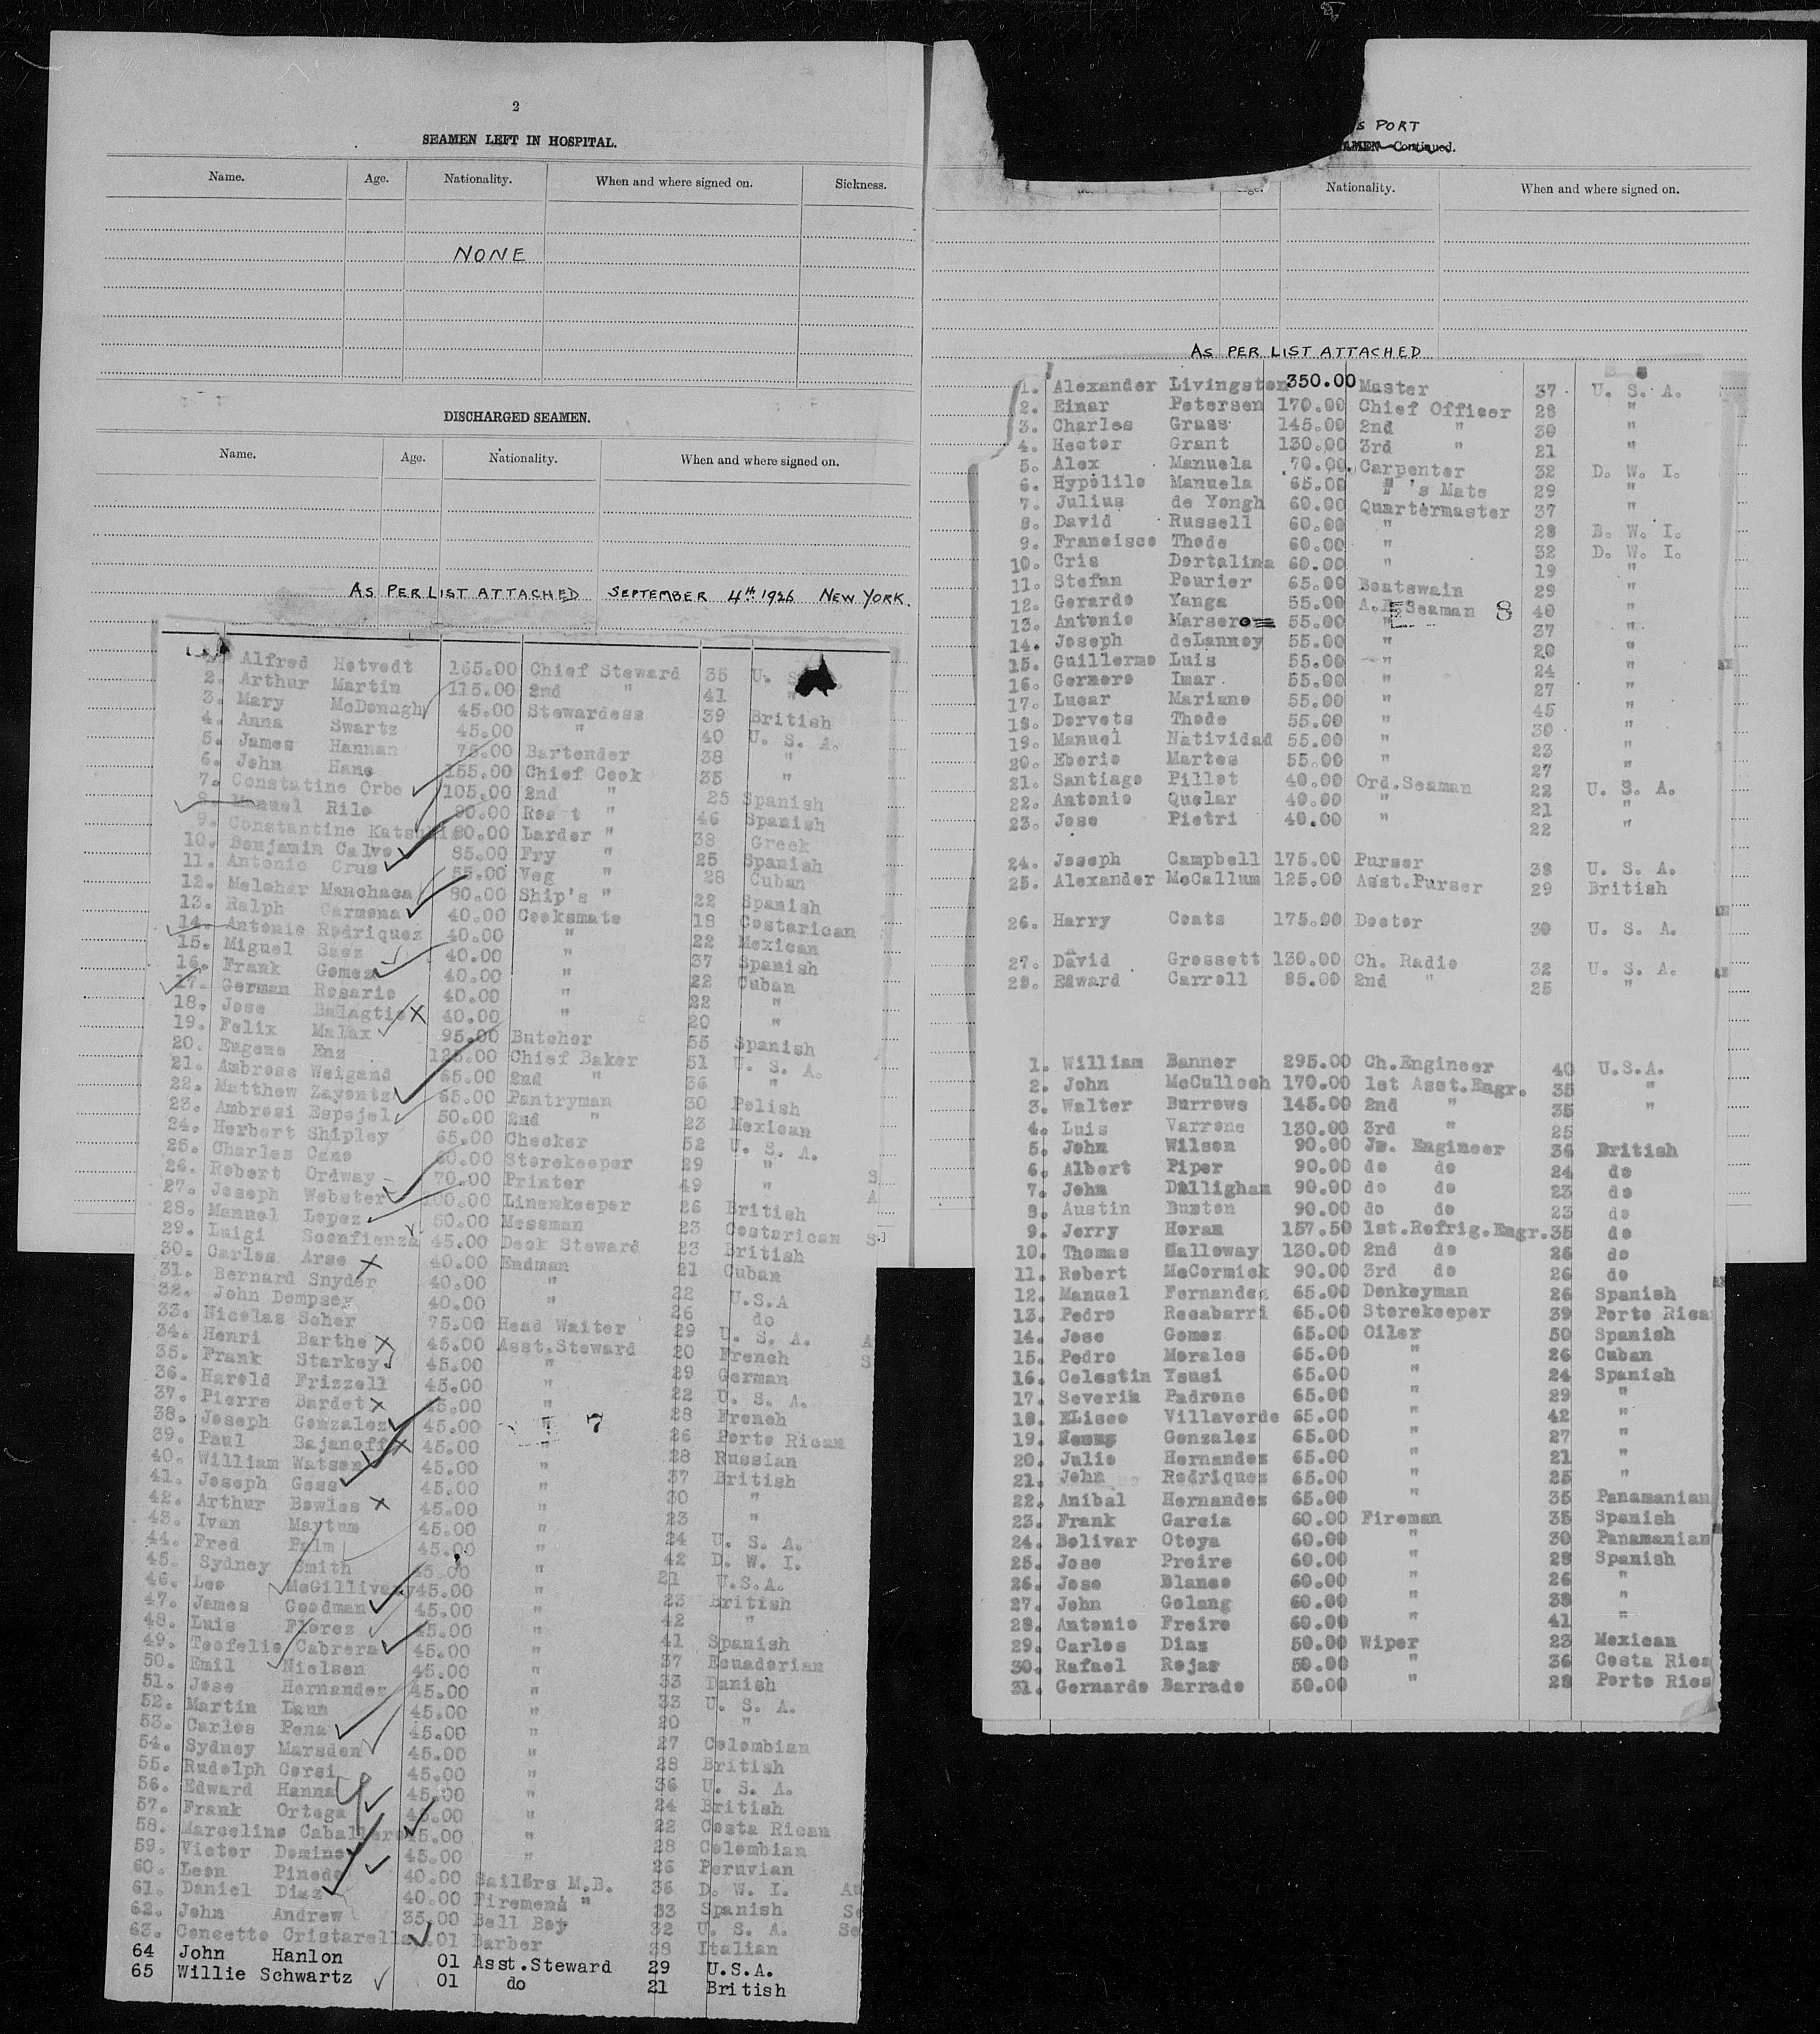 2
SEAMEN LEFT IN HOSPITAL.
Name. Age. Nationality. When and where signed on. Sickness.
NONE
DISCHARGED SEAMEN.
Name. Age. Nationality. When and where signed on.
AS PER LIST ATTACHED SEPTEMBER 4th 1926 NEW YORK.
Alfred Hetvedt 165.00 Chief Steward 35 U. S.
2. Arthur Martin 115.00 2nd " 41 "
3. Mary McDonagh 45.00 Stewardess 39 British
4. Anna Swartz 45.00 " 40 U. S. A.
5. James Hannan 75.00 Bartender 38 "
6. John Hans 155.00 Chief Cook 35 "
7. Constatine Orbe 105.00 2nd " 25 Spanish
8. Manuel Rile 90.00 Roast " 46 Spanish
9. Constantine 80.00 Larder " 38 Greek
10. Benjamin Calvo 85.00 Fry " 25 Spanish
11. Antonio Crus 55.00 Veg " 28 Cuban
12. Melchar Manchaca 80.00 Ship's " 22 Spanish
13. Ralph Carmona 40.00 Cooksmate 18 Costarican
14. Antonio Rodriquez 40.00 " 22 Mexican
15. Miguel Saez 40.00 " 37 Spanish
16. Frank Gomez 40.00 " 22 Cuban
17. German Rosario 40.00 " 22 "
18. Jose 40.00 " 20 "
19. Felix Malax 95.00 Butcher 55 Spanish
20. Eugene Enz 125.00 Chief Baker 51 U. S. A.
21. Ambrose Weigand 65.00 2nd " 36 "
22. Matthew Zayontz 65.00 Pantryman 30 Polish
23. Ambrosi Espejel 50.00 2nd " 23 Mexican
24. Herbert Shipley 65.00 Checker 52 U. S. A.
25. Charles Cane 80.00 Storekeeper 29 "
26. Robert Ordway 70.00 Printer 49 " S
27. Joseph Webster 100.00 Linenkeeper 26 British A
28. Manuel Lopez 50.00 Messman 23 Costarican
29. Luigi Sconfienza 45.00 Deck Steward 23 British S
30. Carlos Arse 40.00 Endman 21 Cuban
31. Bernard Snyder 40.00 " 22 U.S.A
32. John Dempsey 40.00 " 26 do
33. Nicolas Scher 75.00 Head Waiter 29 U. S. A. A
34. Henri Barthe 45.00 Asst.Steward 20 French S
35. Frank Starkey 45.00 " 29 German
36. Harold Frizzell 45.00 " 22 U. S. A.
37. Pierre Bardet 45.00 " 28 French
38. Joseph Gonzalez 45.00 " 7 26 Porto Rican
39. Paul Bajanoff 45.00 " 28 Russian
40. William Watson 45.00 " 37 British
41. Joseph Goss 45.00 " 30 "
42. Arthur Bowles 45.00 " 23 "
43. Ivan Maytum 45.00 " 24 U. S. A.
44. Fred Palm 45.00 " 42 D. W. I.
45. Sydney Smith 45.00 " 21 U.S.A.
46. Leo McGillivary 45.00 " 23 British
47. James Goodman 45.00 " 42 "
48. Luis Florez 45.00 " 41 Spanish
49. Teofelio Cabrera 45.00 " 37 Ecuadorian
50. Emil Nielsen 45.00 " 33 Danish
51. Jose Hernandez 45.00 " 33 U. S. A.
52. Martin Laun 45.00 " 20 "
53. Carlos Pena 45.00 " 27 Colombian
54. Sydney Marsden 45.00 " 28 British
55. Rudolph Corsi 45.00 " 36 U. S. A.
56. Edward Hanna 45.00 " 24 British
57. Frank Ortega 45.00 " 22 Costa Rican
58. Marcelino Caballero 45.00 " 28 Colombian
59. Victor Domine 45.00 " 26 Peruvian
60. Leon Pinedo 40.00 Sailors M.B. 36 D. W. I.
61. Daniel Diaz 40.00 Firemens " 33 Spanish
62. John Andrew 35.00 Bell Boy 32 U. S. A.
63. Concetto Cristarella .01 Barber 38 Italian
64 John Hanlon 01 Asst.Steward 29 U.S.A.
65 Willie Schwartz 01 do 21 British
S PORT
AMEN Continued.
Age. Nationality. When and where signed on.
AS PER LIST ATTACHED
1. Alexander Livingston 350.00 Master 37 U. S. A.
2. Einar Petersen 170.00 Chief Officer 28 "
3. Charles Grass 145.00 2nd " 30 "
4. Hector Grant 130.00 3rd " 21 "
5. Alex Manuela 70.00 Carpenter 32 D. W. I.
6. Hypolilo Manuela 65.00 " 's Mate 29 "
7. Julius de Yongh 60.00 Quartermaster 37 "
8. David Russell 60.00 " 28 B. W. I.
9. Francisco Thode 60.00 " 32 D. W. I.
10. Cris Dortalina 60.00 " 19 "
11. Stefan Pourier 65.00 Boatswain 29 "
12. Gerardo Yanga 55.00 A.B.Seaman 8 40 "
13. Antonio Marsero 55.00 " 37 "
14. Joseph deLannoy 55.00 " 20 "
15. Guillermo Luis 55.00 " 24 "
16. Gormero Imar 55.00 " 27 "
17. Lucar Mariano 55.00 " 45 "
18. Dorvets Thode 55.00 " 30 "
19. Manuel Natividad 55.00 " 23 "
20. Eberio Martes 55.00 " 27 "
21. Santiago Pillot 40.00 Ord.Seaman 22 U. S. A.
22. Antonio Quelar 40.00 " 21 "
23. Jose Pietri 40.00 " 22 "
24. Joseph Campbell 175.00 Purser 38 U. S. A.
25. Alexander McCallum 125.00 Asst.Purser 29 British
26. Harry Coats 175.00 Doctor 30 U. S. A.
27. David Grossett 130.00 Ch. Radio 32 U. S. A.
28. Edward Carroll 85.00 2nd " 25 "
1. William Banner 295.00 Ch.Engineer 40 U.S.A.
2. John McCulloch 170.00 1st Asst.Engr. 35 "
3. Walter Burrows 145.00 2nd " 35 "
4. Luis Varrone 130.00 3rd " 25
5. John Wilson 90.00 Jr. Engineer 36 British
6. Albert Piper 90.00 do do 24 do
7. John Dilligham 90.00 do do 23 do
8. Austin Buxton 90.00 do do 23 do
9. Jerry Horan 157.50 1st.Refrig.Engr. 35 do
10. Thomas Halloway 130.00 2nd do 26 do
11. Robert McCormick 90.00 3rd do 26 do
12. Manuel Fernandez 65.00 Donkeyman 26 Spanish
13. Pedro Recabarri 65.00 Storekeeper 39 Porto Rica
14. Jose Gomez 65.00 Oiler 50 Spanish
15. Pedro Morales 65.00 " 26 Cuban
16. Celestin Yousi 65.00 " 24 Spanish
17. Severin Padrone 65.00 " 29 "
18. ELiseo Villaverde 65.00 " 42 "
19. Gonzalez 65.00 " 27 "
20. Julio Hernandez 65.00 " 21 "
21. John Rodriquez 65.00 " 25 "
22. Anibal Hernandez 65.00 " 35 Panamanian
23. Frank Garcia 60.00 Fireman 35 Spanish
24. Bolivar Otoya 60.00 " 30 Panamanian
25. Jose Preire 60.00 " 28 Spanish
26. Jose Blanco 60.00 " 26 "
27. John Golang 60.00 " 38 "
28. Antonio Freire 60.00 " 41 "
29. Carlos Diaz 50.00 Wiper 23 Mexican
30. Rafael Rojas 50.00 " 36 Costa Rica
31. Gernardo Barrado 50.00 " 28 Porto Rico